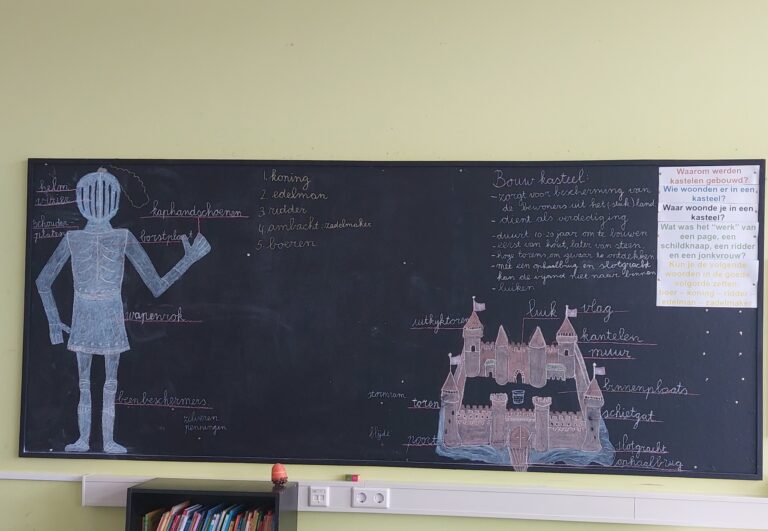 helm
vizier
schouder
platen
kaphandschoenen
borstplaat
wapenrok
beenbeschermers
zilveren
penningen
1. koning
2. edelman
3. ridder
4. ambacht: zadelmaker
5. boeren
Bouw kasteel:
- zorgt voor bescherming van
de bewoners uit het (stuk) land
- dient als verdediging
- duurt 10 20 jaar om te bouwen
- eerst van hout, later van steen
- hoge torens om gevaar te ontdekken
- met een ophaalbrug en slotgracht
kan de vijand niet naar binnen
- luiken
uitkyktoren
luik
vlag
kantelen
muur
binnenplaats
stormram
toren
schietgat
poort
slotgracht
ophaalbrug
Waarom werden
kastelen gebouwd?
Wie woonden er in een
kasteel?
Waar woonde je in een
kasteel?
Wat was het "werk" van
een page, een
schildknaap, een ridder
en een jonkvrouw?
Kun je de volgende
woorden in de goede
volgorde zetten:
boer – koning – ridder –
edelman – zadelmaker